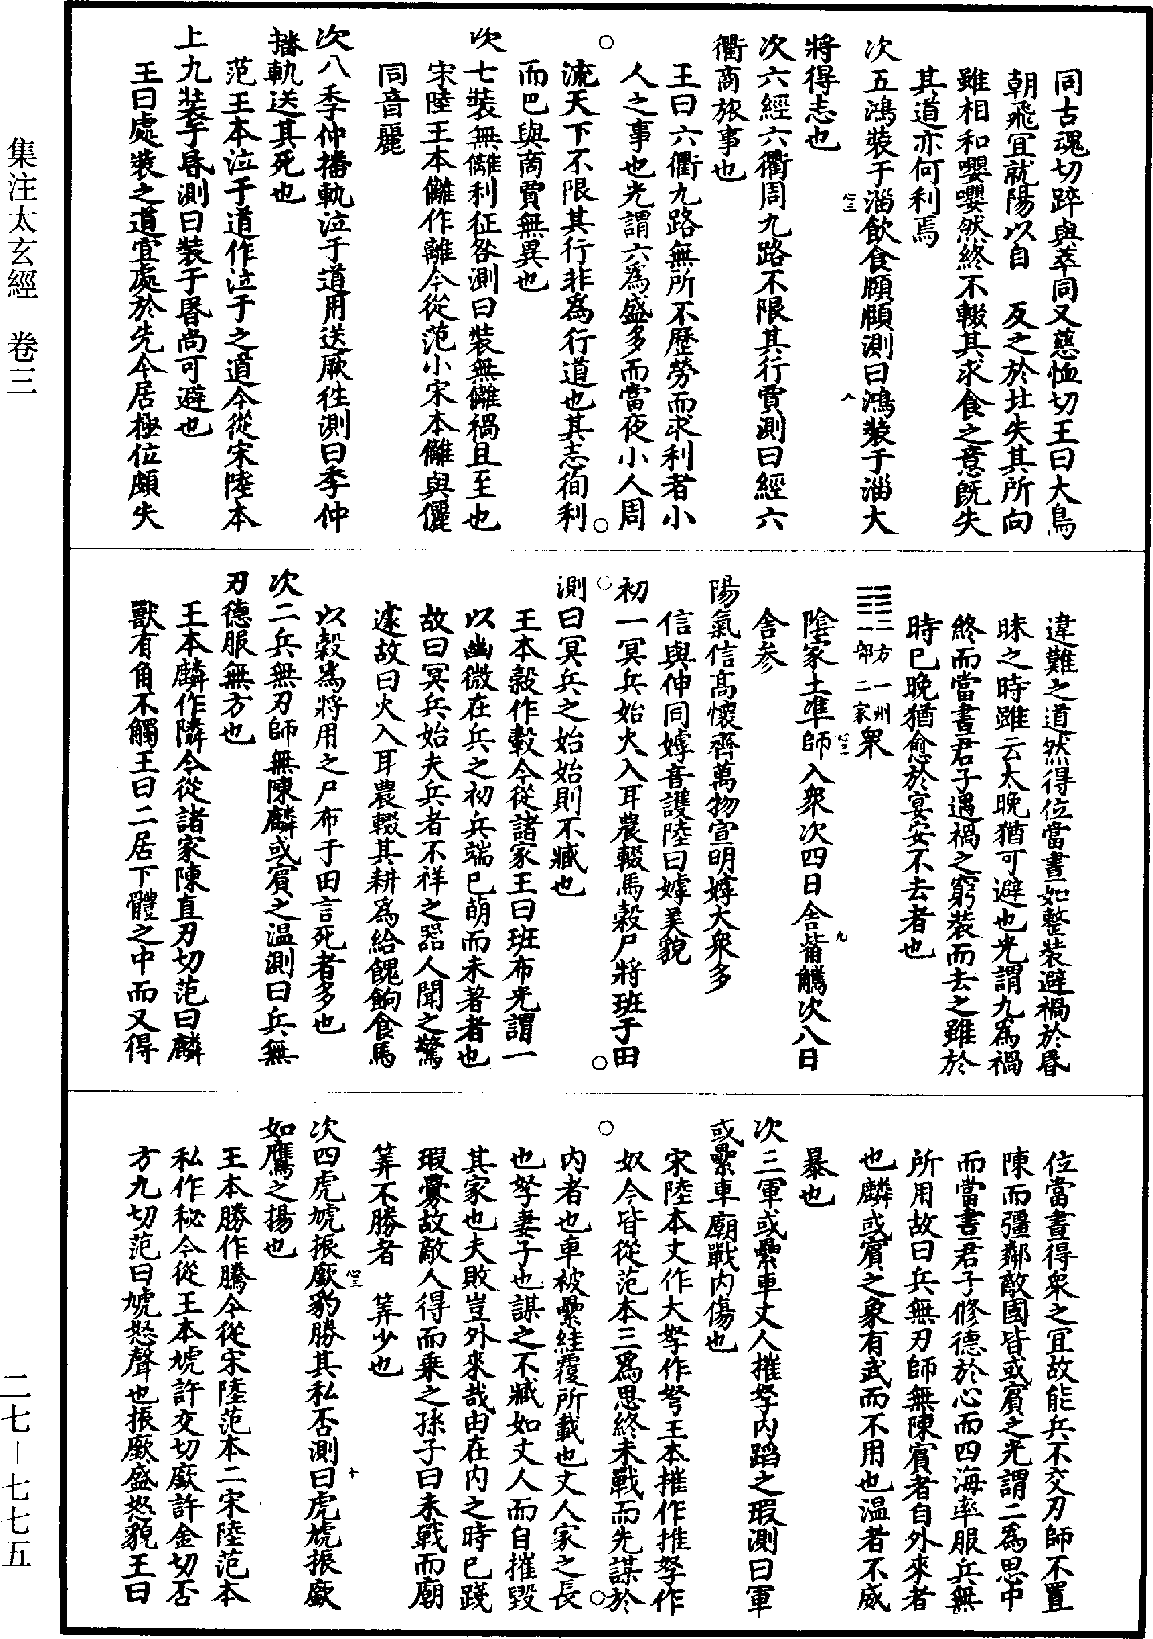 集注太玄經　卷三
同古魂切踤與萃同又慈恤切王曰大鳥
朝飛宜就陽以自　反之於北失其所向
雖相和嚶嚶然終不輟其求食之意既失
其道亦何利焉
次五鴻裝于淄飲食頤頤測曰鴻裝于淄大
將得志也
次六經六衢周九路不限其行賈測曰經六
衢商旅事也
王曰六衢九路無所不歷勞而求利者小
人之事也光謂六為盛多而當夜小人周
流天下不限其行非為行道也其志徇利
而巳與商賈無異也
次七裝無儷利征咎測曰裝無儷禍且至也
宋陸王本儷作離今從范小宋本儷與儷
同音麗
次八季仲播軌泣于道用送厥往測曰季仲
播軌送其死也
范王本泣于道作泣于之道今從宋陸本
上九裝于昬測曰裝于昬尚可避也
王曰處裝之道宜處於先今居極位頗失
違難之道然得位當晝如整裝避禍於昬
昧之時雖云太晚猶可避也光謂九為禍
終而當晝君子遇禍之窮裝而去之雖於
時巳晚猶愈於宴安不去者也
二方一州一部二家衆
陰家土準師入衆次四日舍觜觿次八日
舍参
陽氣信髙懷齊萬物宣明嫭大衆多
信與伸同嫭音護陸曰嫭美貌
初一冥兵始火入耳農輟馬穀尸將班于田
測曰冥兵之始始則不臧也
王本穀作轂今從諸家王曰班布光謂一
以幽微在兵之初兵端巳萌而未著者也
故曰冥兵始夫兵者不祥之器人聞之驚
遽故曰火入耳農輟其耕為給餽餉食馬
以穀焉將用之尸布于田言死者多也
次二兵無刃師無陳麟或賓之温測曰兵無
刃德服無方也
王本麟作隣今從諸家陳直刃切范曰麟
獸有角不觸王曰二居下體之中而又得
位當晝得衆之宜故能兵不交刃師不置
陳而彊鄰敵國皆或賓之光謂二為思中
而當晝君子修德於心而四海率服兵無
所用故曰兵無刃師無陳賓者自外來者
也麟或賓之象有武而不用也温者不威
暴也
次三軍或纍車丈人摧孥内蹈之瑕測曰軍
或纍車廟戰内傷也
宋陸本丈作大孥作弩王本摧作推孥作
奴今皆從范本三為思終未戰而先謀於
内者也車被纍絓覆所載也丈人家之長
也孥妻子也謀之不臧如丈人而自摧毀
其家也夫敗豈外來哉由在内之時巳踐
瑕釁故敵人得而乗之孫子曰未戰而廟
筭不勝者　筭少也
次四虎虓振廞豹勝其私否測曰虎虓振廞
如鷹之揚也
王本勝作騰今從宋陸范本二宋陸范本
私作秘今從王本虓許交切廞許金切否
方九切范曰虓怒聲也振廞盛怒貌王曰
二七－七七五